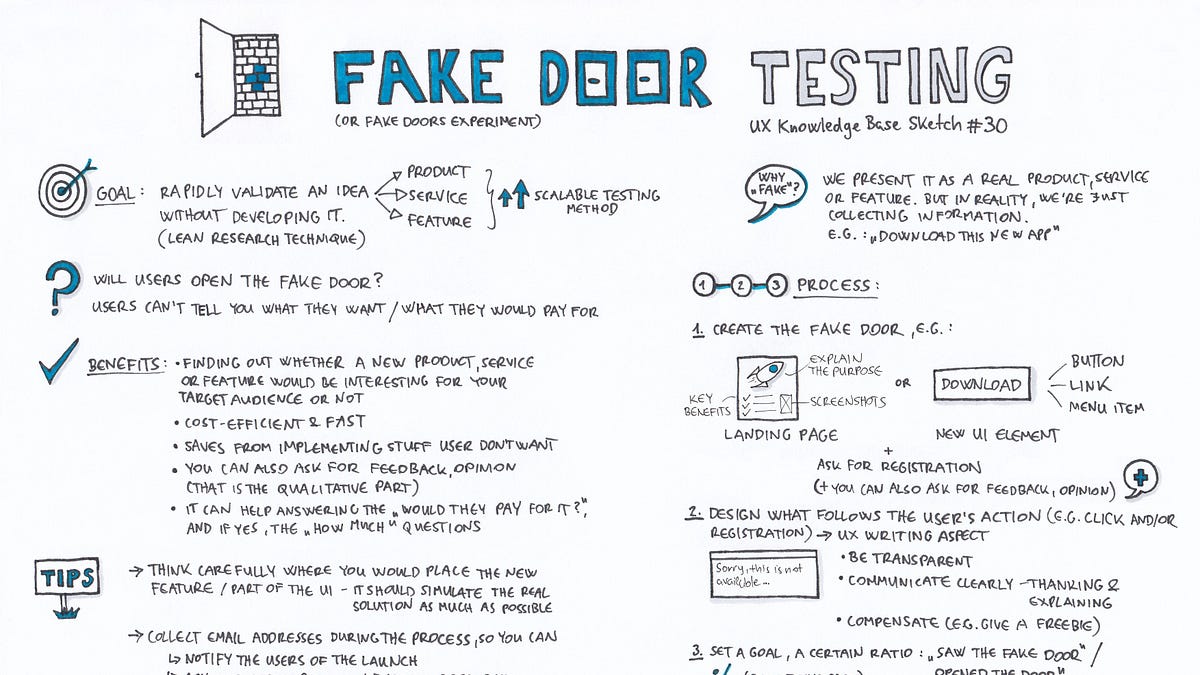 FAKE DOOR TESTING
(OR FAKE DOORS EXPERIMENT)
UX Knowledge Base Sketch #30
GOAL: RAPIDLY VALIDATE AN IDEA
WITHOUT DEVELOPING IT.
(LEAN RESEARCH TECHNIQUE)
PRODUCT
SERVICE
FEATURE
SCALABLE TESTING
METHOD
WHY
„FAKE"?
WE PRESENT IT AS A REAL PRODUCT, SERVICE
OR FEATURE. BUT IN REALITY, WE'RE JUST
COLLECTING INFORMATION.
E.G.: „DOWNLOAD THIS NEW APP"
? WILL USERS OPEN THE FAKE DOOR?
USERS CAN'T TELL YOU WHAT THEY WANT / WHAT THEY WOULD PAY FOR
BENEFITS: • FINDING OUT WHETHER A NEW PRODUCT, SERVICE
OR FEATURE WOULD BE INTERESTING FOR YOUR
TARGET AUDIENCE OR NOT
• COST-EFFICIENT & FAST
• SAVES FROM IMPLEMENTING STUFF USER DON'T WANT
• YOU CAN ALSO ASK FOR FEEDBACK, OPINION
(THAT IS THE QUALITATIVE PART)
• IT CAN HELP ANSWERING THE „WOULD THEY PAY FOR IT?",
AND IF YES, THE „HOW MUCH" QUESTIONS
TIPS
→ THINK CAREFULLY WHERE YOU WOULD PLACE THE NEW
FEATURE / PART OF THE UI - IT SHOULD SIMULATE THE REAL
SOLUTION AS MUCH AS POSSIBLE
→ COLLECT EMAIL ADDRESSES DURING THE PROCESS, SO YOU CAN
↳ NOTIFY THE USERS OF THE LAUNCH
1 2 3 PROCESS:
1. CREATE THE FAKE DOOR, E.G.:
EXPLAIN
THE PURPOSE
KEY
BENEFITS
SCREENSHOTS
LANDING PAGE
OR
DOWNLOAD
BUTTON
LINK
MENU ITEM
NEW UI ELEMENT
+
ASK FOR REGISTRATION
(+ YOU CAN ALSO ASK FOR FEEDBACK, OPINION)
2. DESIGN WHAT FOLLOWS THE USER'S ACTION (E.G. CLICK AND/OR
REGISTRATION) → UX WRITING ASPECT
Sorry, this is not
available...
• BE TRANSPARENT
• COMMUNICATE CLEARLY - THANKING &
EXPLAINING
• COMPENSATE (E.G. GIVE A FREEBIE)
3. SET A GOAL, A CERTAIN RATIO: „SAW THE FAKE DOOR" /
OPENED THE DOOR"